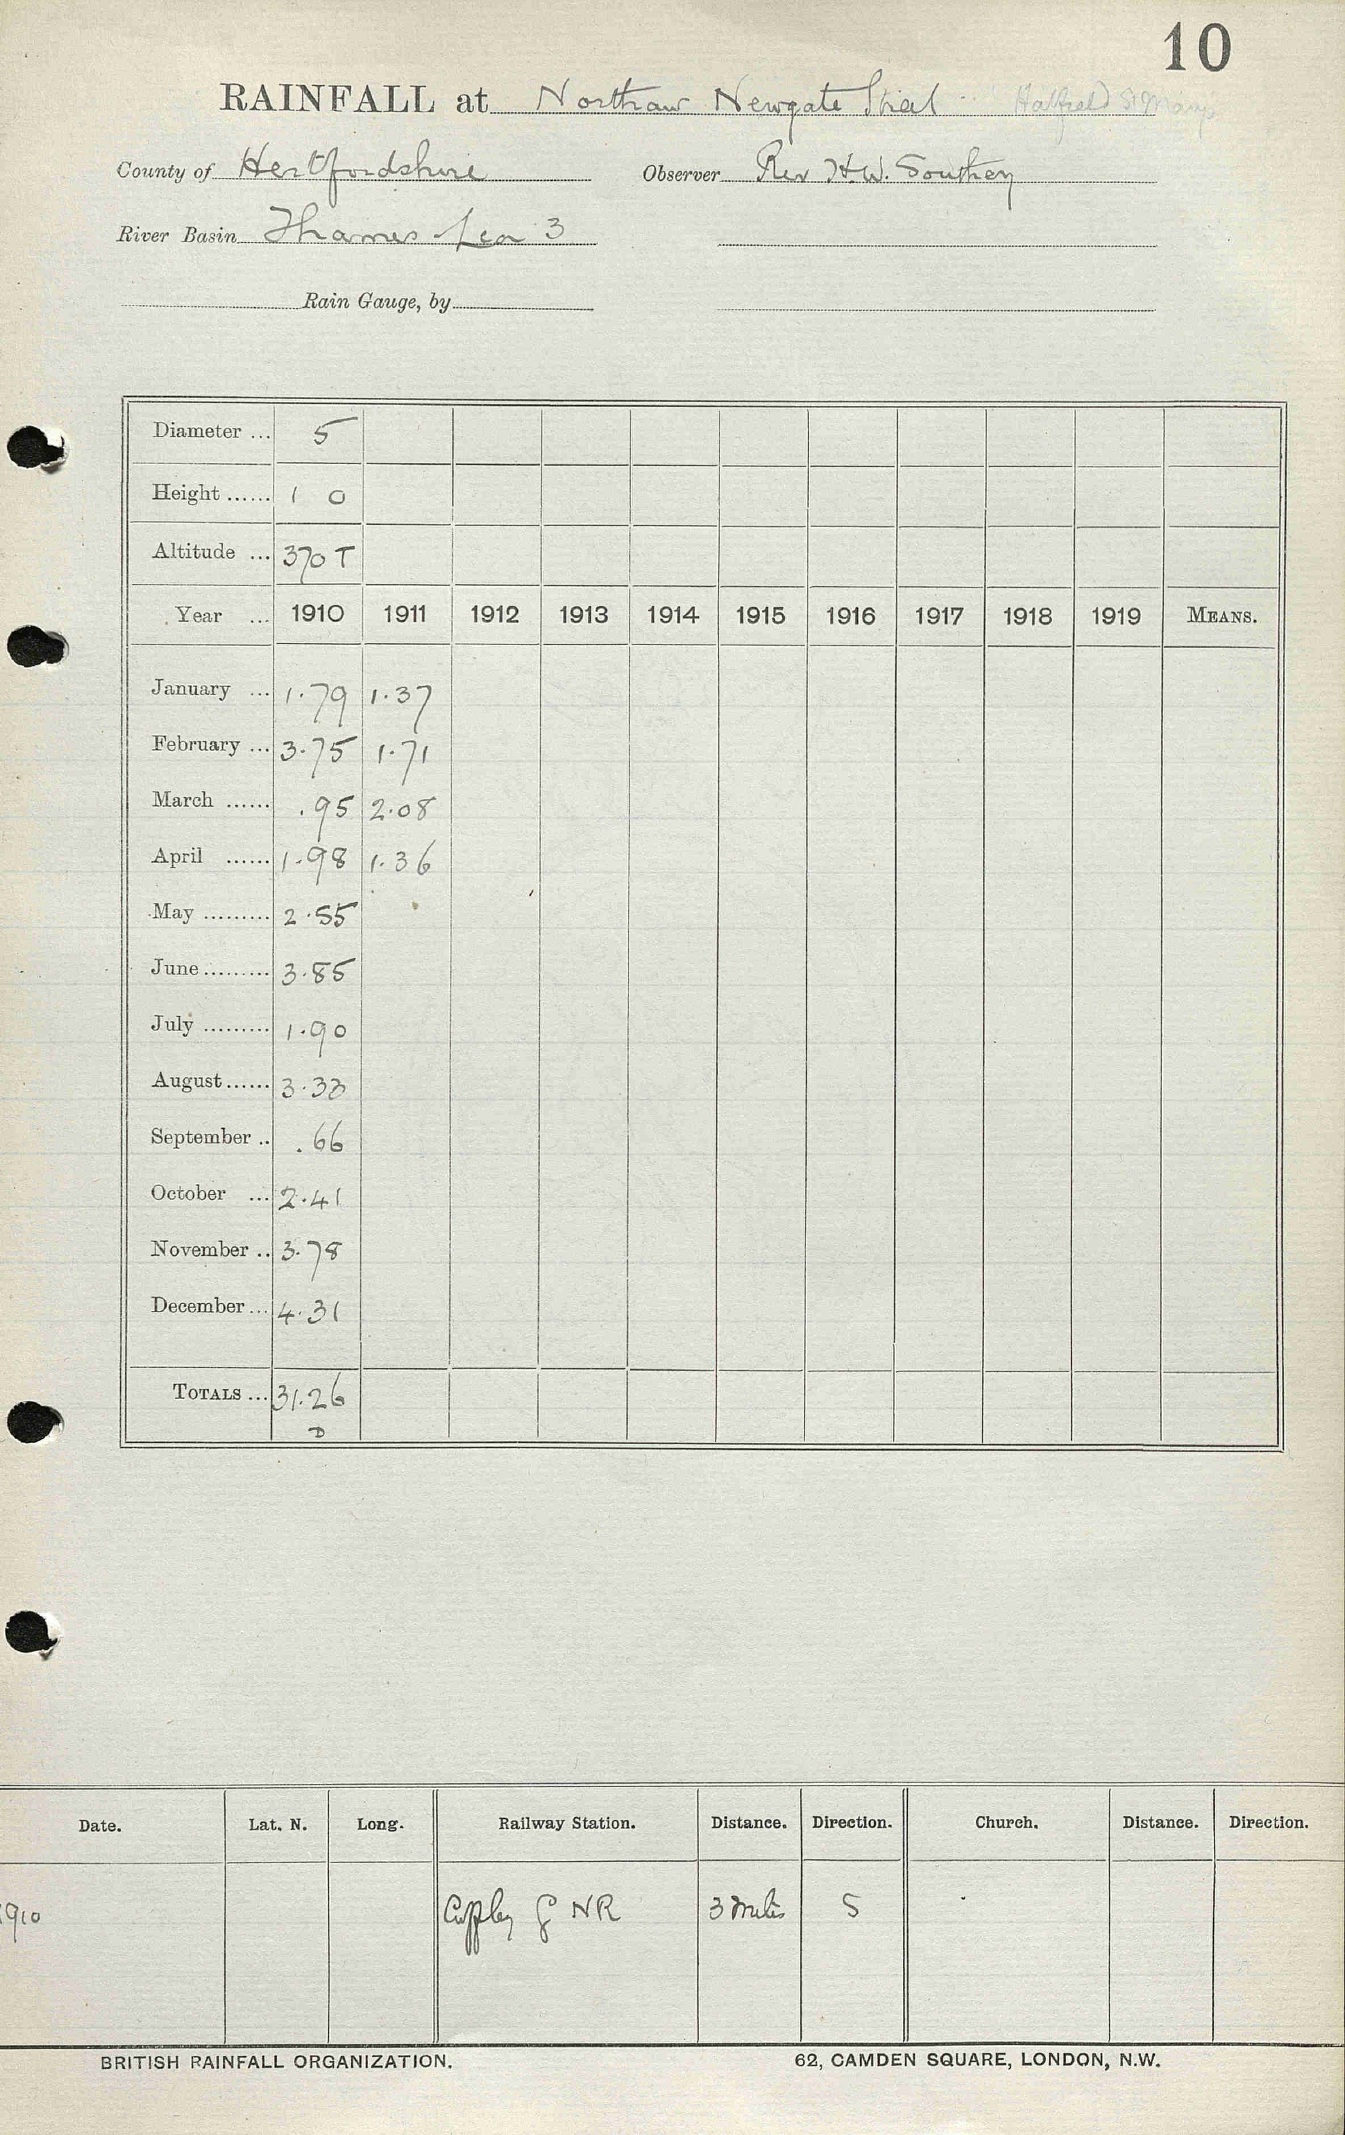 10
RAINFALL at Northaw Newgate Street Hatfield St Marys
County of Hertfordshire Observer Rev H.W. Southey
River Basin Thames Lea 3
Rain Gauge, by
Diameter ... 5
Height ...... 1 0
Altitude ... 370 T
Year ... 1910 1911 1912 1913 1914 1915 1916 1917 1918 1919 MEANS.
January ... 1.79 1.37
February ... 3.75 1.71
March ...... .95 2.08
April ...... 1.98 1.36
May ......... 2.55
June ......... 3.85
July ......... 1.90
August ...... 3.33
September .. .66
October ... 2.41
November .. 3.78
December ... 4.31
TOTALS ... 31.26
D
Date. Lat. N. Long. Railway Station. Distance. Direction. Church. Distance. Direction.
1910 Cuffley G N R 3 miles S
BRITISH RAINFALL ORGANIZATION. 62, CAMDEN SQUARE, LONDON, N.W.